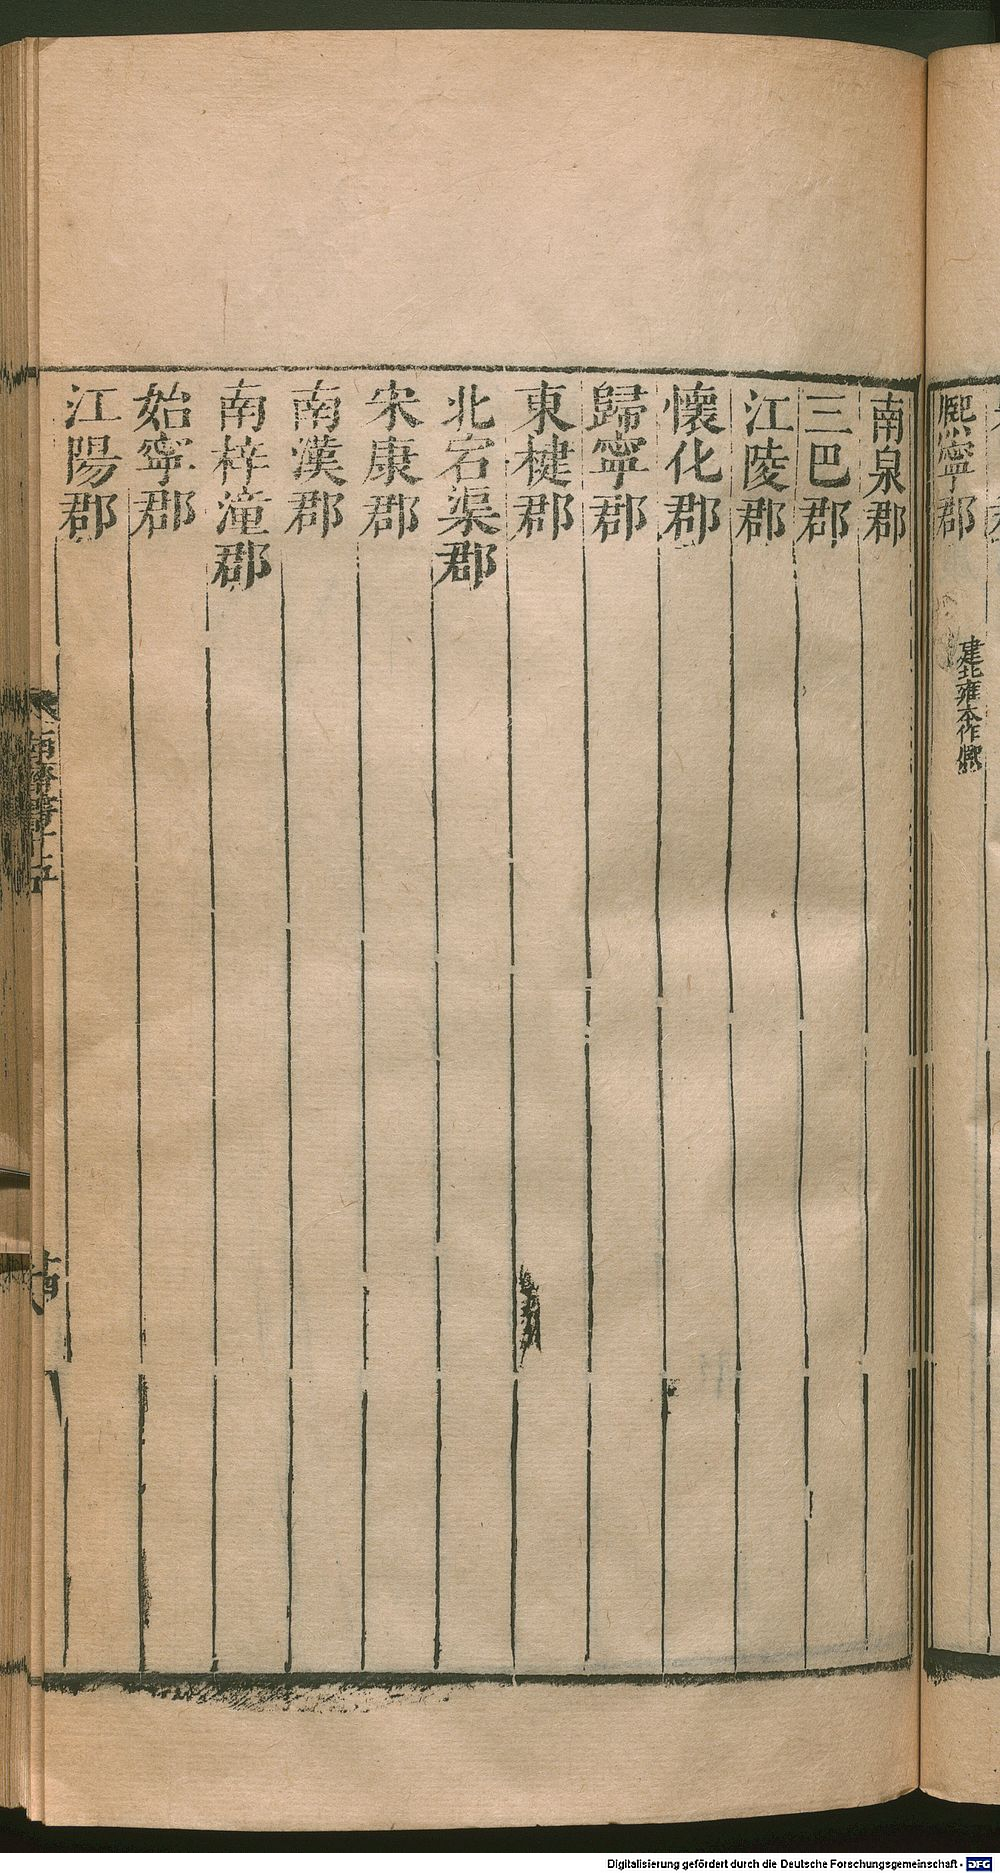 熈寧郡
建北雍本作
南泉郡
三巴郡
江陵郡
懷化郡
歸寧郡
東楗郡
北宕渠郡
宋康郡
南漢郡
南梓潼郡
始寧郡
江陽郡
南齊書十五
Digitalisierung gefördert durch die Deutsche Forschungsgemeinschaft - DFG